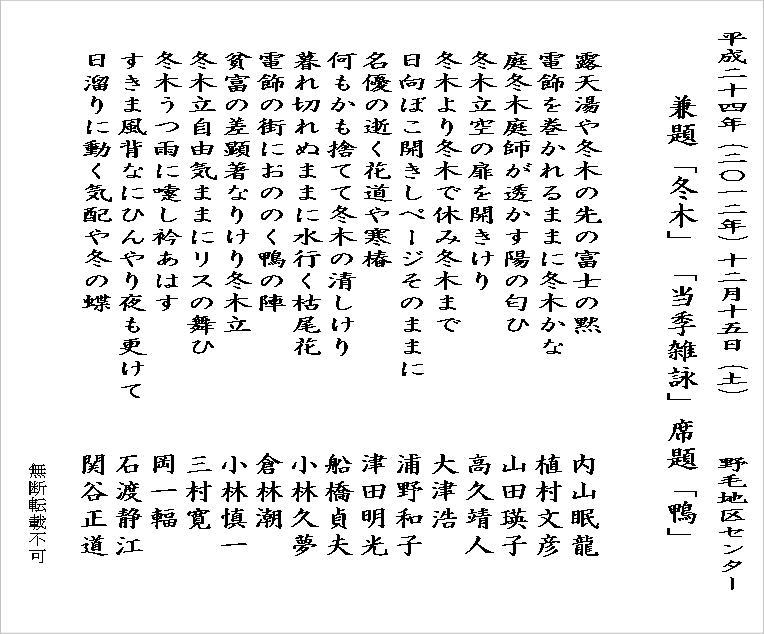 平成二十四年（二〇一二年）十二月十五日（土）　野毛地区センター
兼題「冬木」「当季雑詠」席題「鴨」
露天湯や冬木の先の富士の黙　内山眠龍
電飾を巻かれるままに冬木かな　植村文彦
庭冬木庭師が透かす陽の匂ひ　山田瑛子
冬木立空の扉を開きけり　高久靖人
冬木より冬木で休み冬木まで　大津浩
日向ぼこ開きしページそのままに　浦野和子
名優の逝く花道や寒椿　津田明光
何もかも捨てて冬木の清しけり　船橋貞夫
暮れ切れぬままに水行く枯尾花　小林久夢
電飾の街におののく鴨の陣　倉林潮
貧富の差顕著なりけり冬木立　小林慎一
冬木立自由気ままにリスの舞ひ　三村寛
冬木うつ雨に嚏し衿あはす　岡一輻
すきま風背なにひんやり夜も更けて　石渡静江
日溜りに動く気配や冬の蝶　関谷正道
無断転載不可